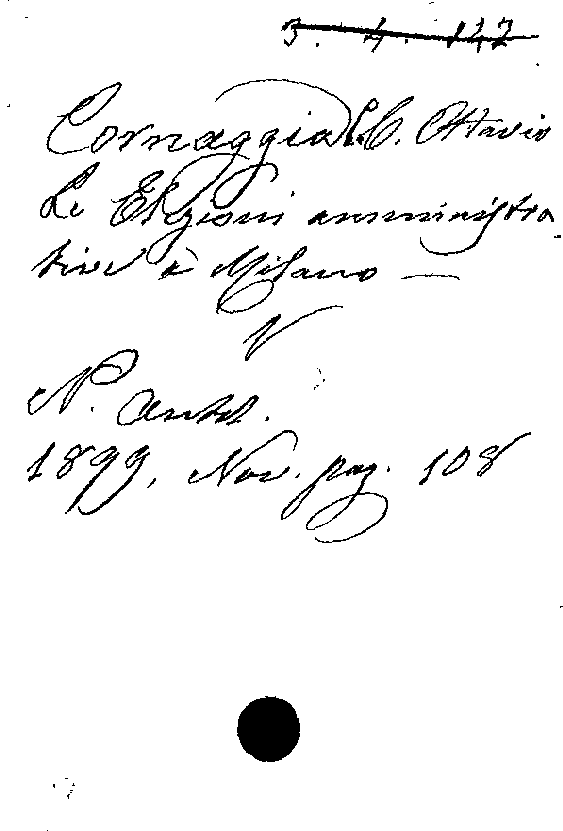 3. 4. 147
Cornaggia C. Ottavio
Le Elezioni amministra
tive a Milano —
V
N. Antol.
1899, Nov. pag. 108